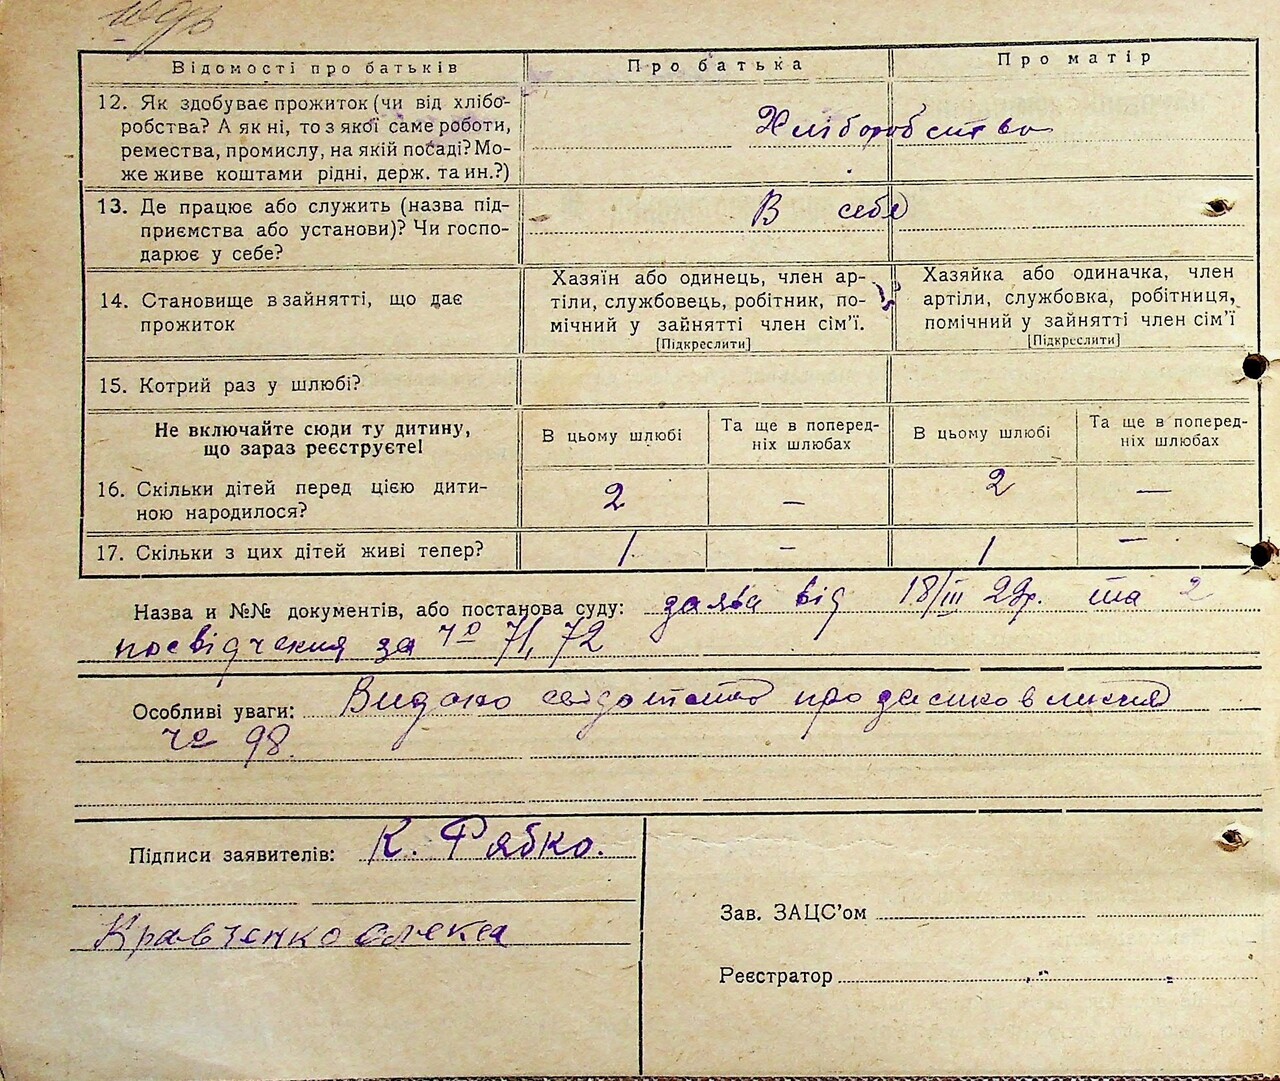 Відомості про батьків
Про батька
Про матір
12. Як здобуває прожиток (чи від хлібо-
робства? А як ні, то з якої саме роботи,
ремества, промислу, на якій посаді? Мо-
же живе коштами рідні, держ. та ин.?)
Хліборобство
13. Де працює або служить (назва під-
приємства або установи)? Чи госпо-
дарює у себе?
В себе
14. Становище в зайнятті, що дає
прожиток
Хазяїн або одинець, член ар-
тіли, службовець, робітник, по-
мічний у зайнятті член сім'ї.
[Підкреслити]
Хазяйка або одиначка, член
артіли, службовка, робітниця,
помічний у зайнятті член сім'ї
[Підкреслити]
15. Котрий раз у шлюбі?
Не включайте сюди ту дитину,
що зараз реєструєте!
В цьому шлюбі
Та ще в поперед-
ніх шлюбах
В цьому шлюбі
Та ще в поперед-
ніх шлюбах
16. Скільки дітей перед цією дити-
ною народилося?
2 — 2 —
17. Скільки з цих дітей живі тепер?
1 — 1 —
Назва и №№ документів, або постанова суду: заява від 18/III 22р. та 2
посвідчення за № 71, 72
Особливі уваги: Видано про
№ 98.
Підписи заявителів: К. Рябко.
Кравченко Олекса
Зав. ЗАЦС'ом
Реєстратор